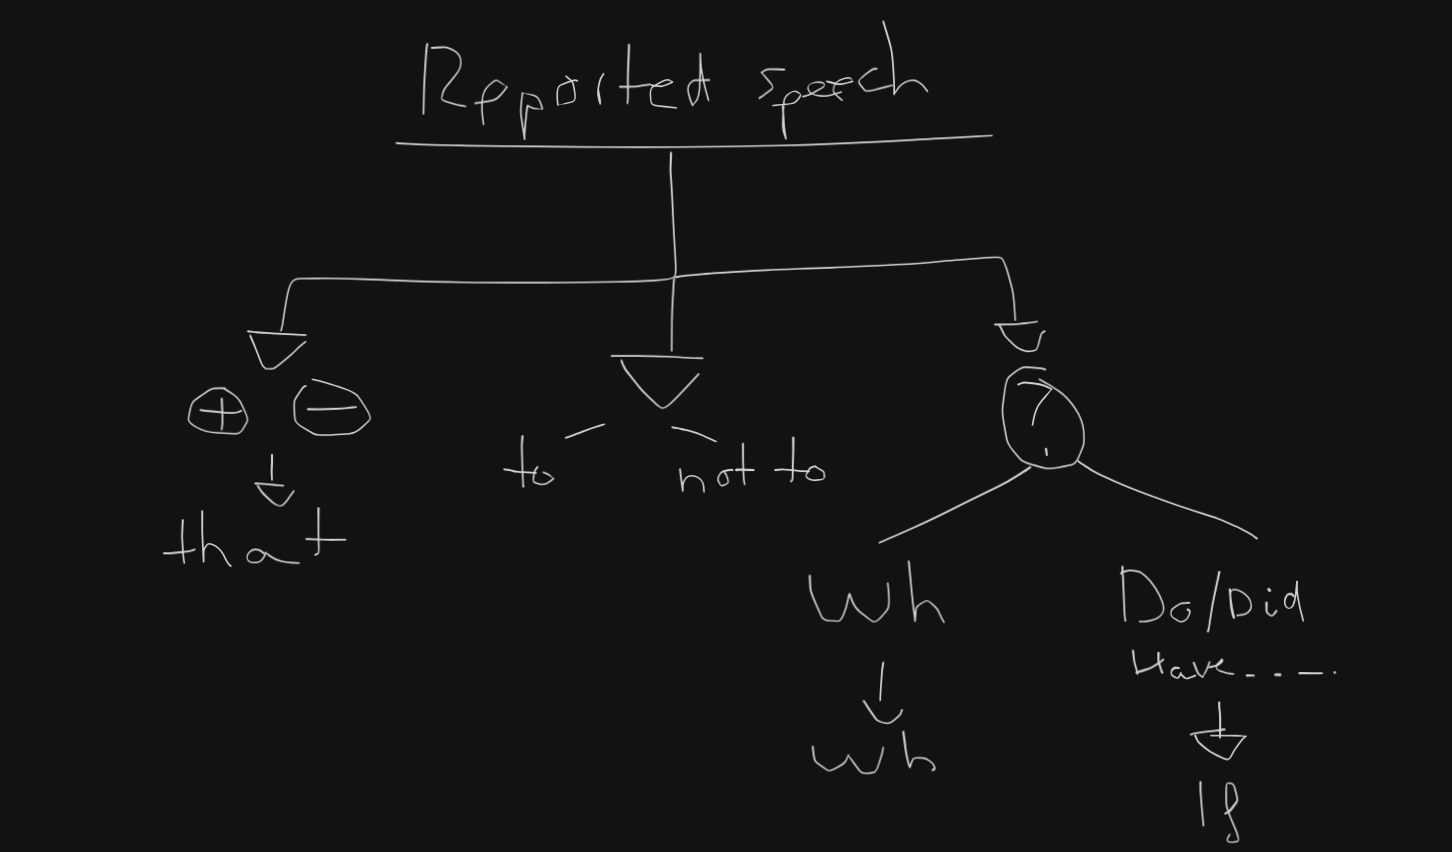 Reported speech
+ −
that
to
not to
?
Wh
Wh
Do/Did
Have.....
If